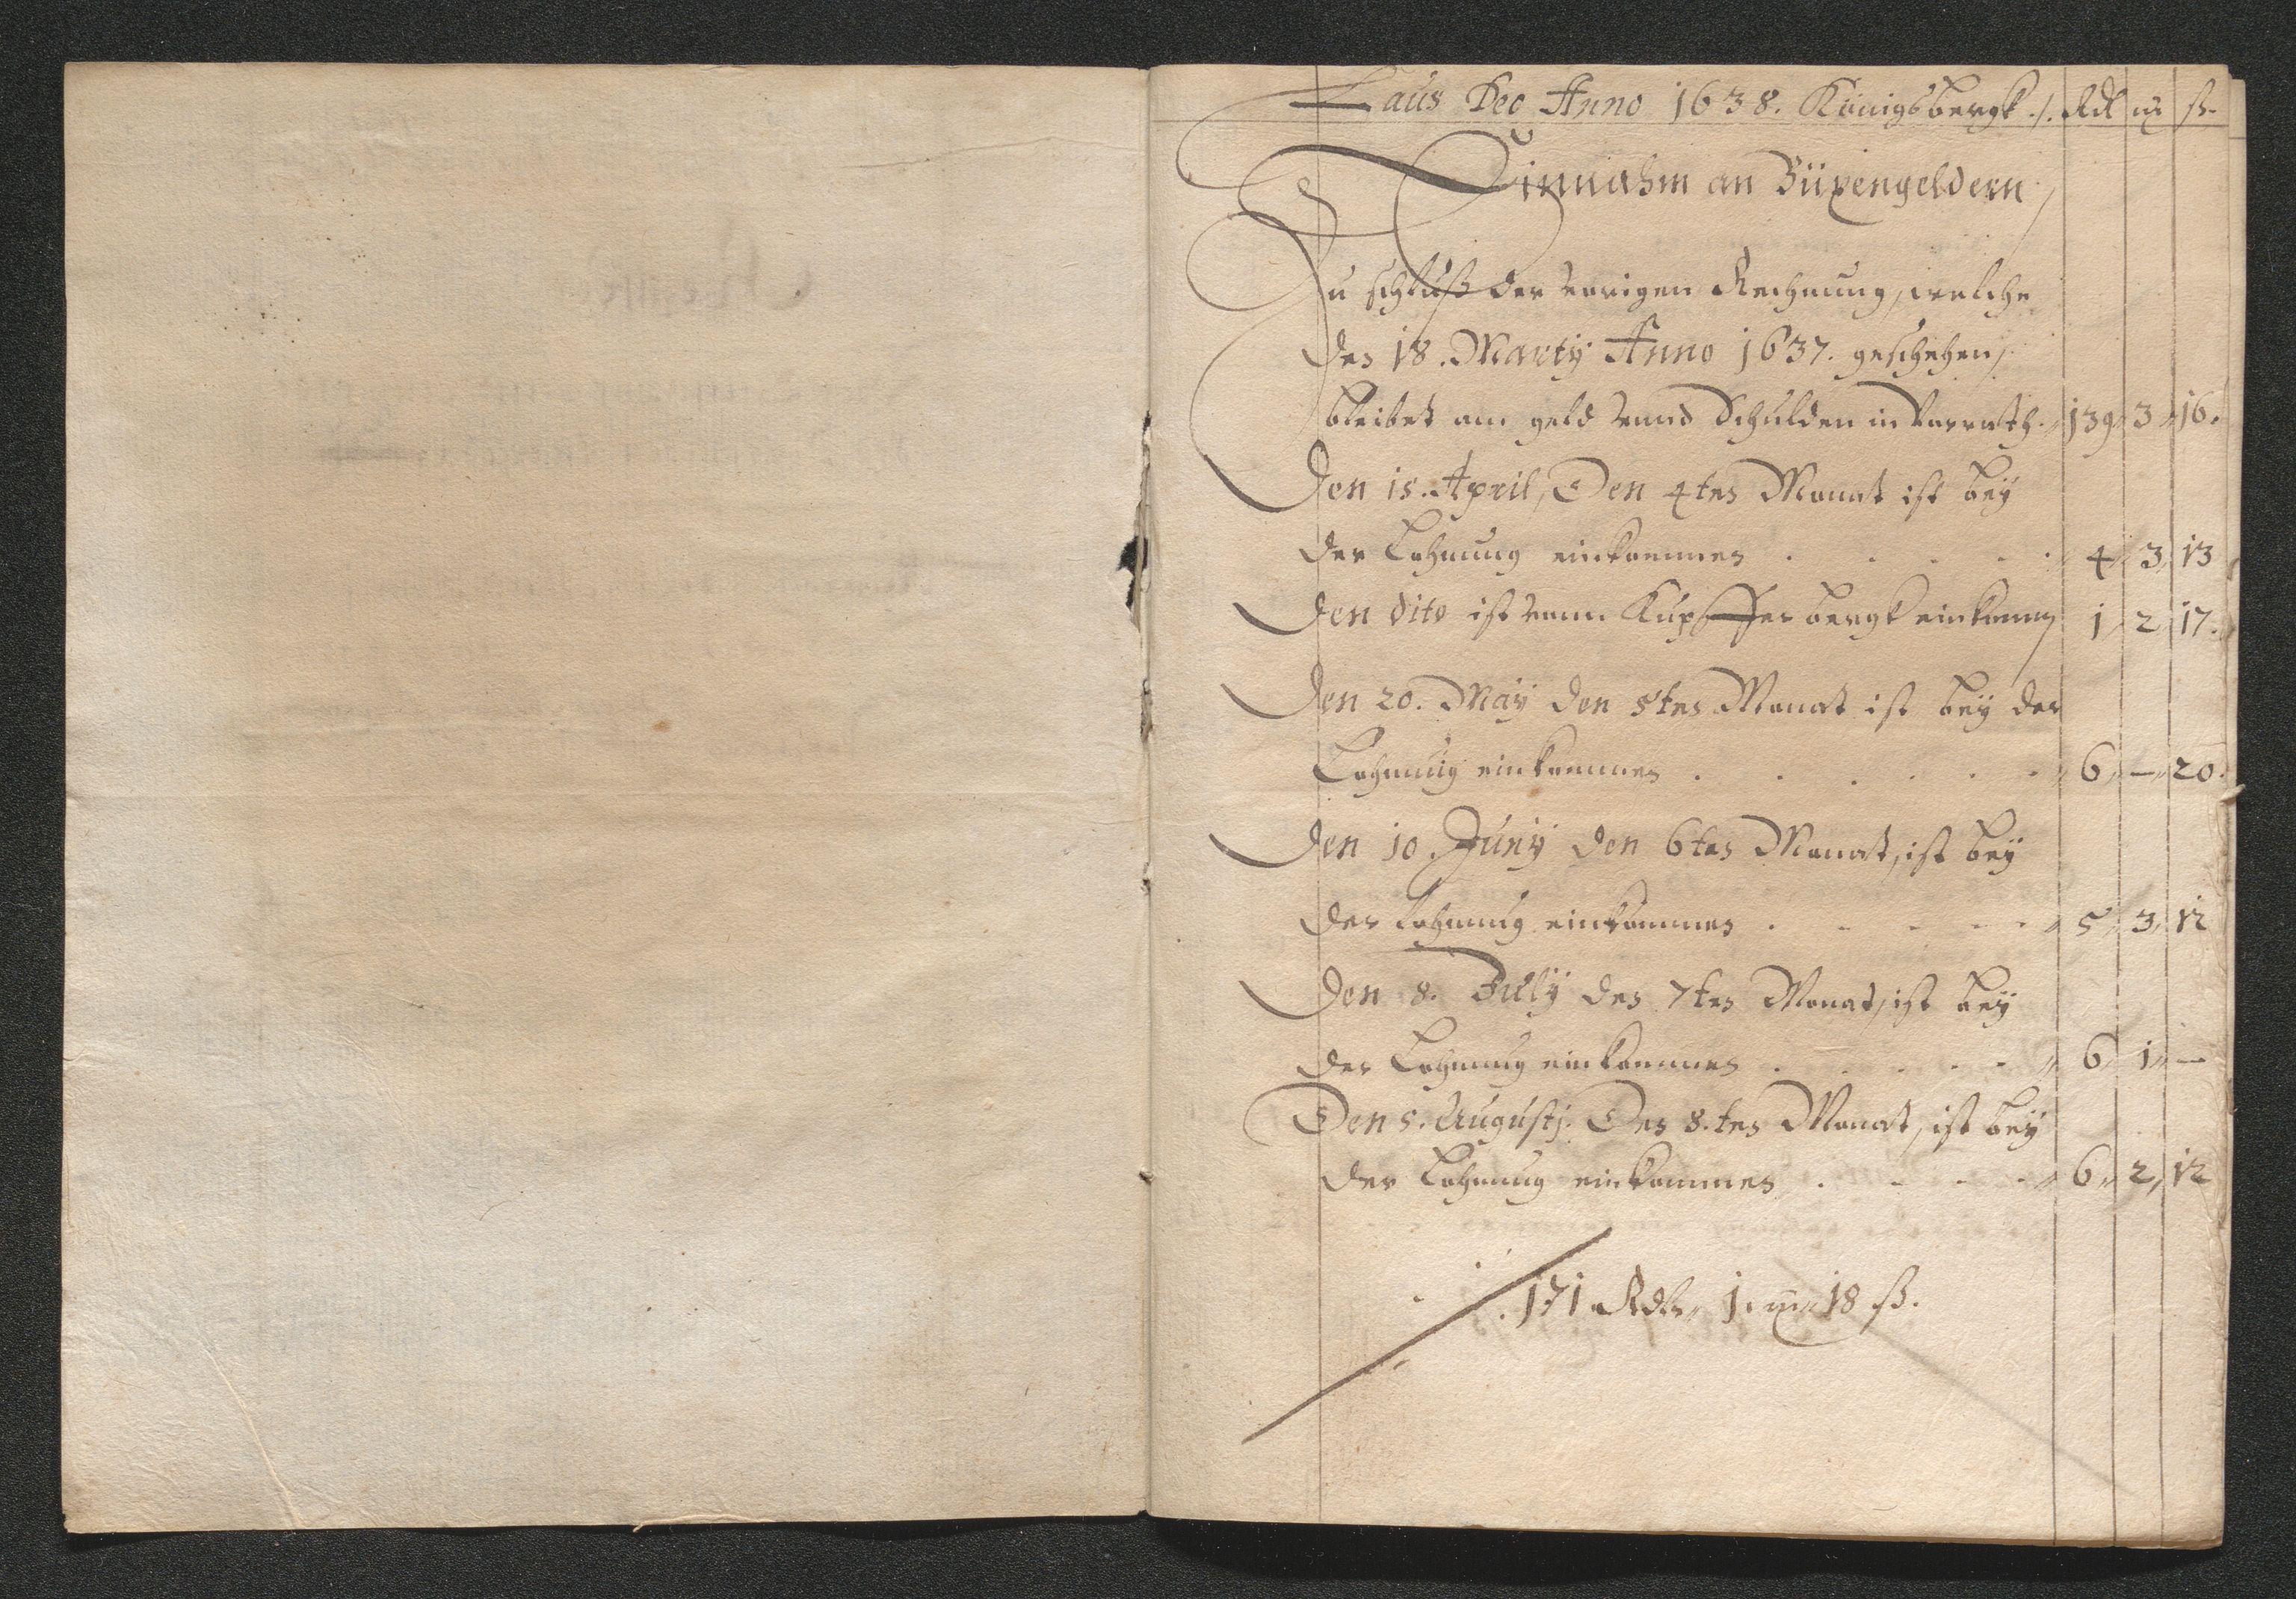 Laus Deo Anno 1638. Königsbergk ./. Rdl m ß.
Einnahm an Büxengeldern
Zu schluß der vorigen Rechnung, welche
den 18. Marty Anno 1637. geschehen,
bleibet am geld vnnd Schulden in Vorrath. 139 3 16.
Den 15. April, Den 4ten Monat ist bey
der Lohnung einkommen . . . . . 4 3 13
Den dito ist vom Kupffer bergk einkomm 1 2 17.
Den 20. May den 5ten Monat ist bey der
Lohnung einkommen . . . . . . 6 — 20.
Den 10. Juny den 6ten Monat, ist bey
der Lohnung einkommen . . . . . 5 3 12
Den 8. July den 7ten Monat, ist bey
der Lohnung einkommen . . . . . 6 1 —
Den 5. Augustj. Den 8.ten Monat, ist bey
der Lohnung einkommen . . . . 6 2 12
171 Rdlr 1 m 18 ß.